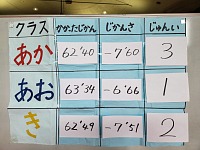 クラス かかったじかん じかんさ じゅんい
あか 62'40 -7'60 3
あお 63'34 -6'66 1
き 62'49 -7'51 2